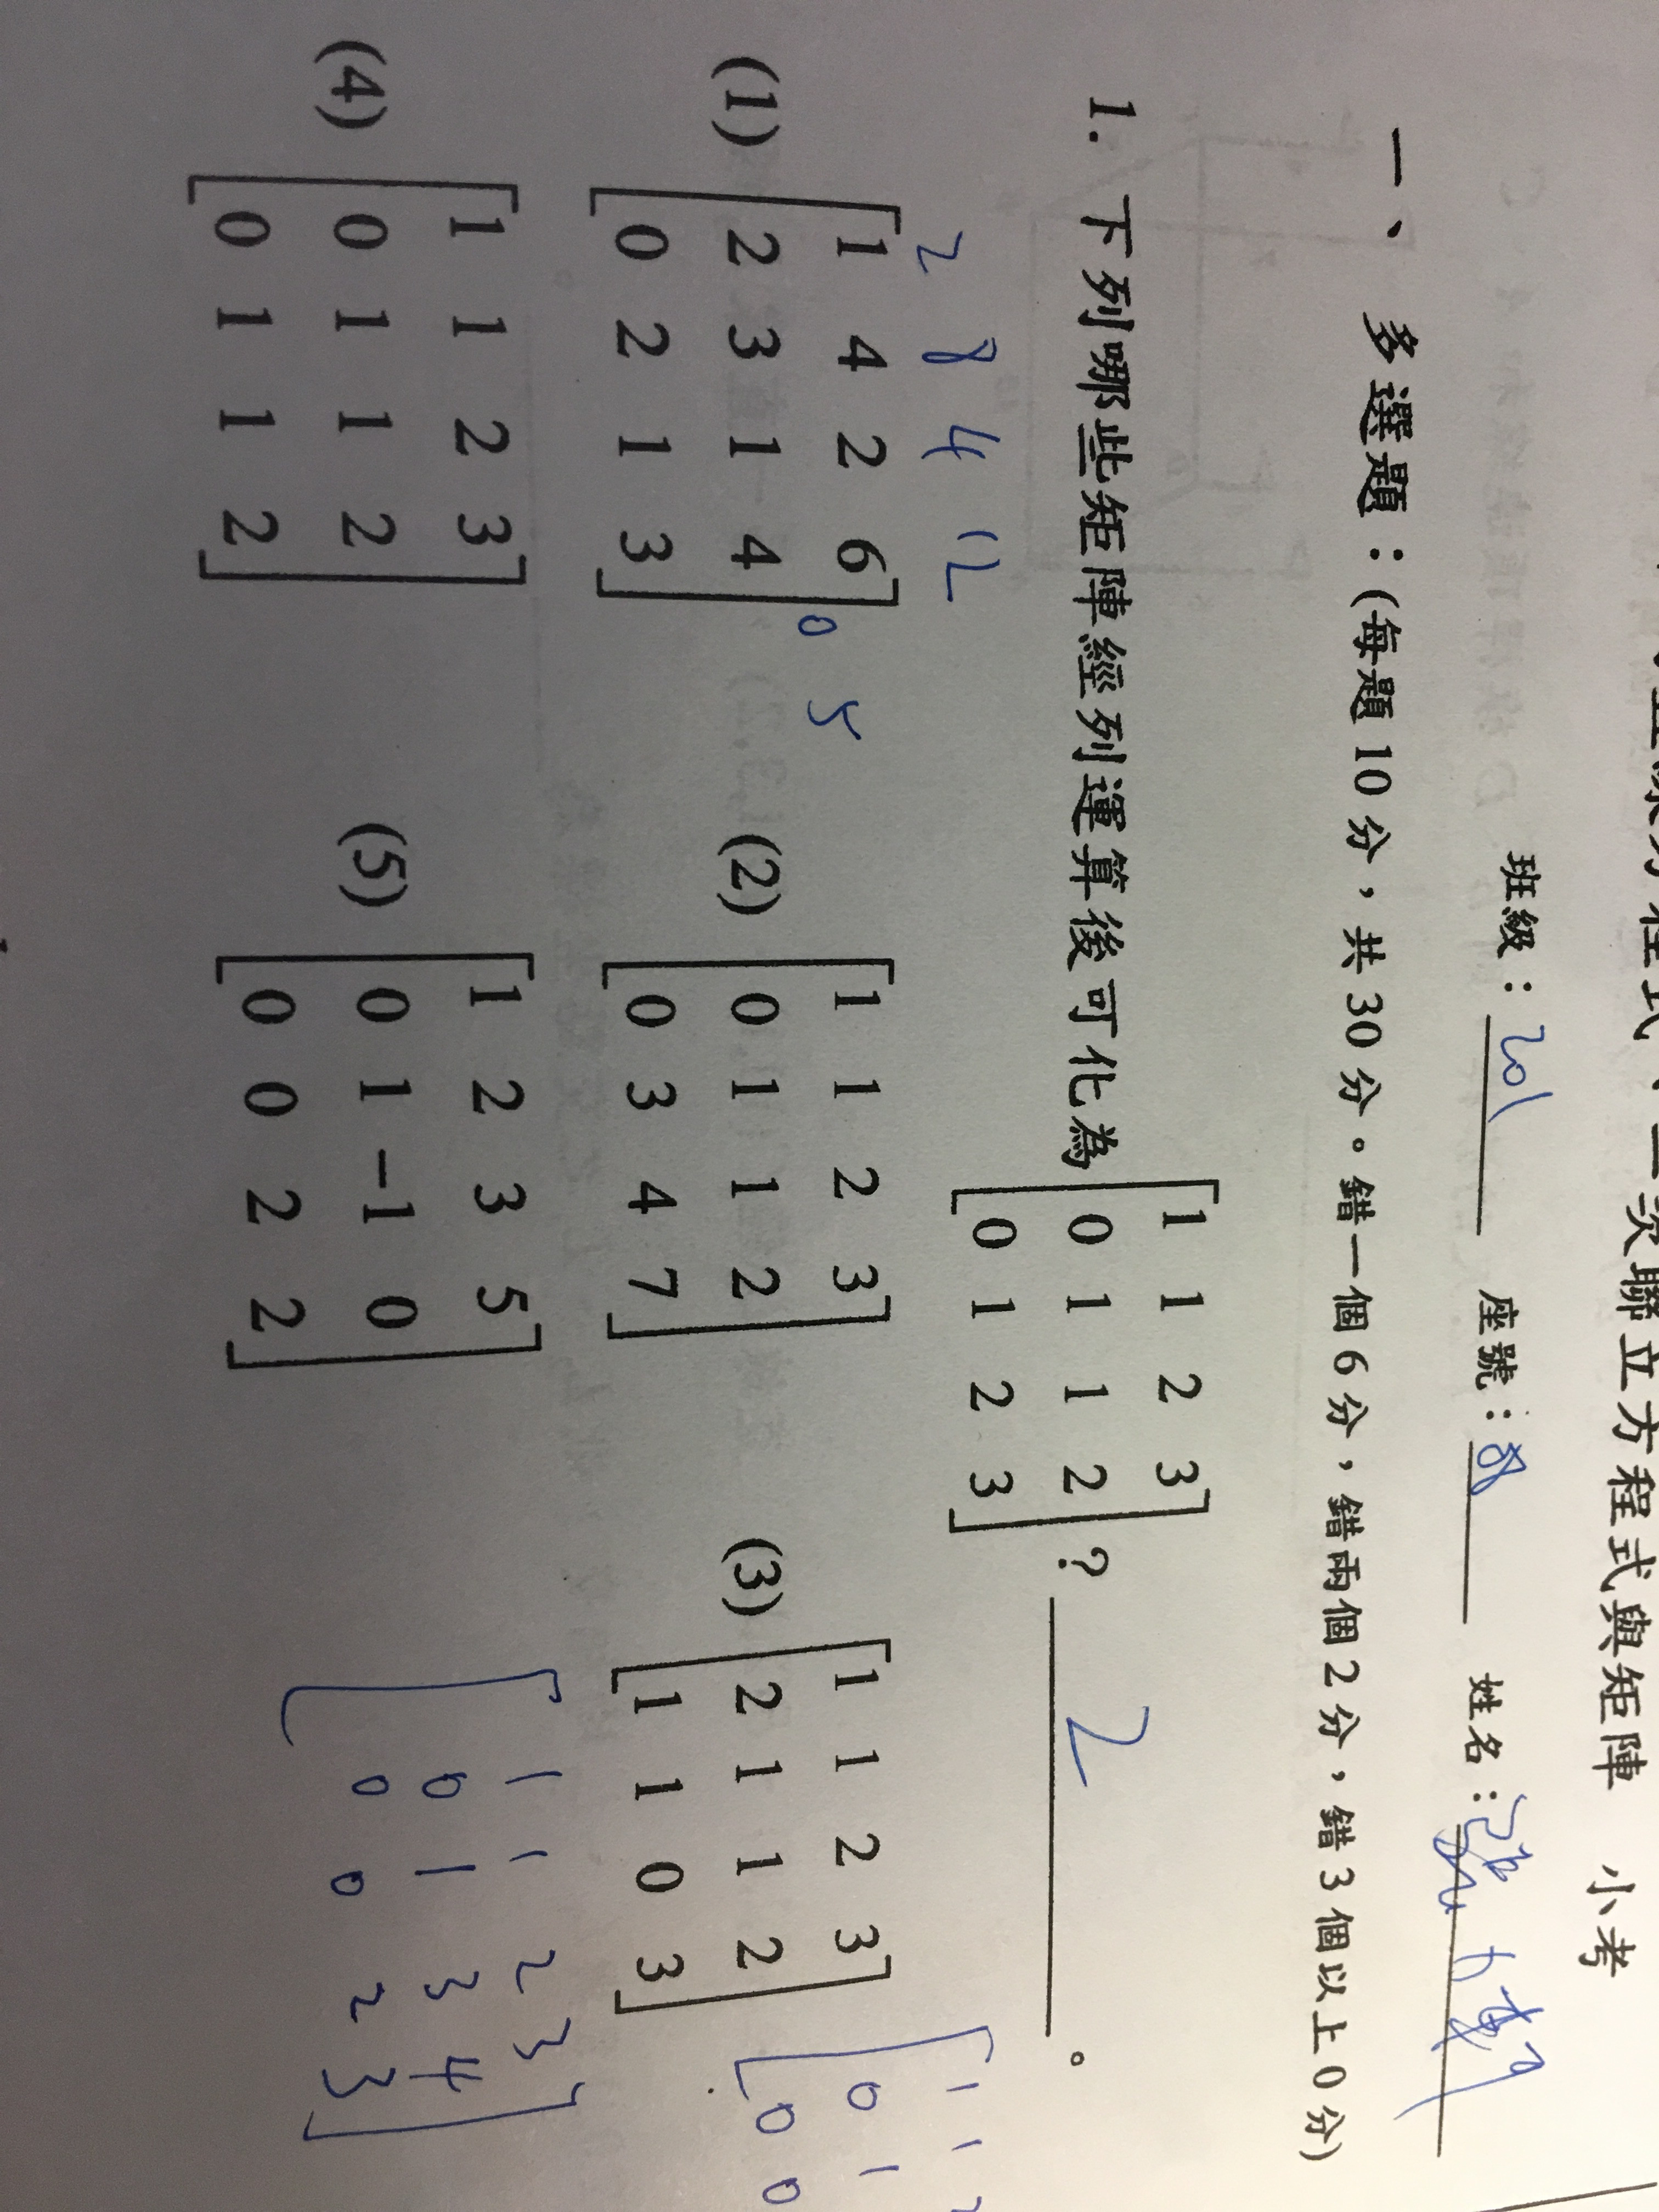 線方程式、二次聯立方程式與矩陣 小考
班級：201 座號：8 姓名：張
一、多選題：(每題10分，共30分。錯一個6分，錯兩個2分，錯3個以上0分)
1. 下列哪些矩陣經列運算後可化為 [1 1 2 3
0 1 1 2
0 1 2 3] ? 2 。
2 8 4 12
(1) [1 4 2 6
2 3 1 4
0 2 1 3]
0 5
(2) [1 1 2 3
0 1 1 2
0 3 4 7]
(3) [1 1 2 3
2 1 1 2
1 1 0 3]
[1 1 2
0 1
0 0
(4) [1 1 2 3
0 1 1 2
0 1 1 2]
(5) [1 2 3 5
0 1 -1 0
0 0 2 2]
[1 1 2 3
0 1 3 4
0 0 2 3]